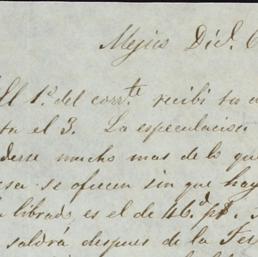 Mejico Dic.
El 1º. del corr.te recibi su
ta el 3. La especulacion
derse mucho mas de lo que
esa se ofrecen sin que hay
librado, es el de 46.d p$.
saldrá despues de la Fer